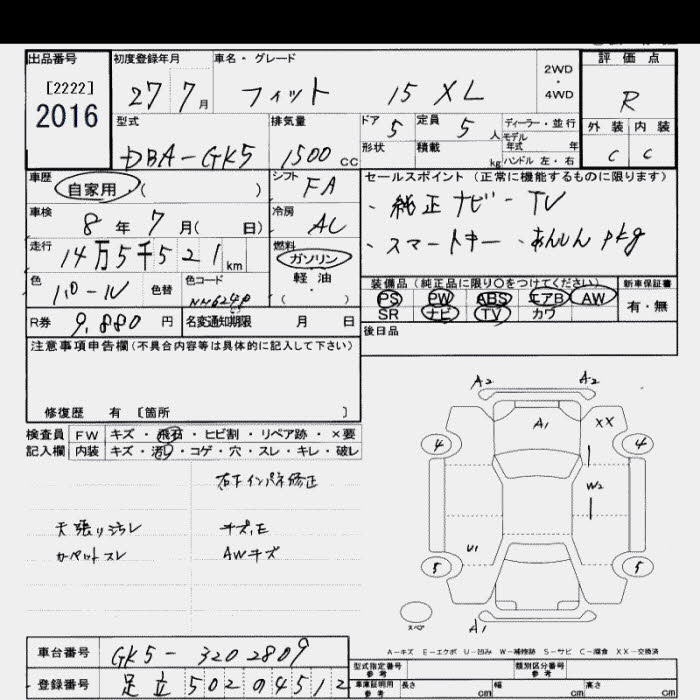 出品番号 初度登録年月 車名・グレード 2WD・4WD 評価点
[2222]
2016
27 7月 フィット 15 XL R
型式 排気量 ドア 定員 ディーラー・並行 外装 内装
DBA-GK5 1500cc 5 5人 モデル年式 年
形状 積載 kg ハンドル 左・右 C C
車歴 シフト セールスポイント (正常に機能するものに限ります)
自家用・( ) FA
・純正ナビ-TV
車検 冷房
8年7月( 日) AC
・スマートキー ・あんしんpkg
走行 燃料
14万5千521km ガソリン・軽油
( )
色 色替 色コード
装備品 (純正品に限り○をつけてください) 新車保証書
PS PW ABS エアB AW 有・無
SR ナビ TV カワ
R券 9,880円 名変通知期限 月 日
後日品
注意事項申告欄(不具合内容等は具体的に記入して下さい)
修復歴 有 [箇所 ]
検査員 FW キズ・飛石・ヒビ割・リペア跡・×要
記入欄 内装 キズ・汚れ・コゲ・穴・スレ・キレ・破レ
右下インパネ修正
天張り汚レ
カーペットスレ AWキズ
A2 A2
A1 XX
4 4
W2
U1
5 5
スペア
A1
A-キズ E-エクボ U-凹み W-補修跡 S-サビ C-腐食 XX-交換済
車台番号 GK5-3202809
登録番号 足立502の4512
型式指定番号 参考 類別区分番号 参考
車庫証明用 参考 長さ cm 幅 cm 高さ cm